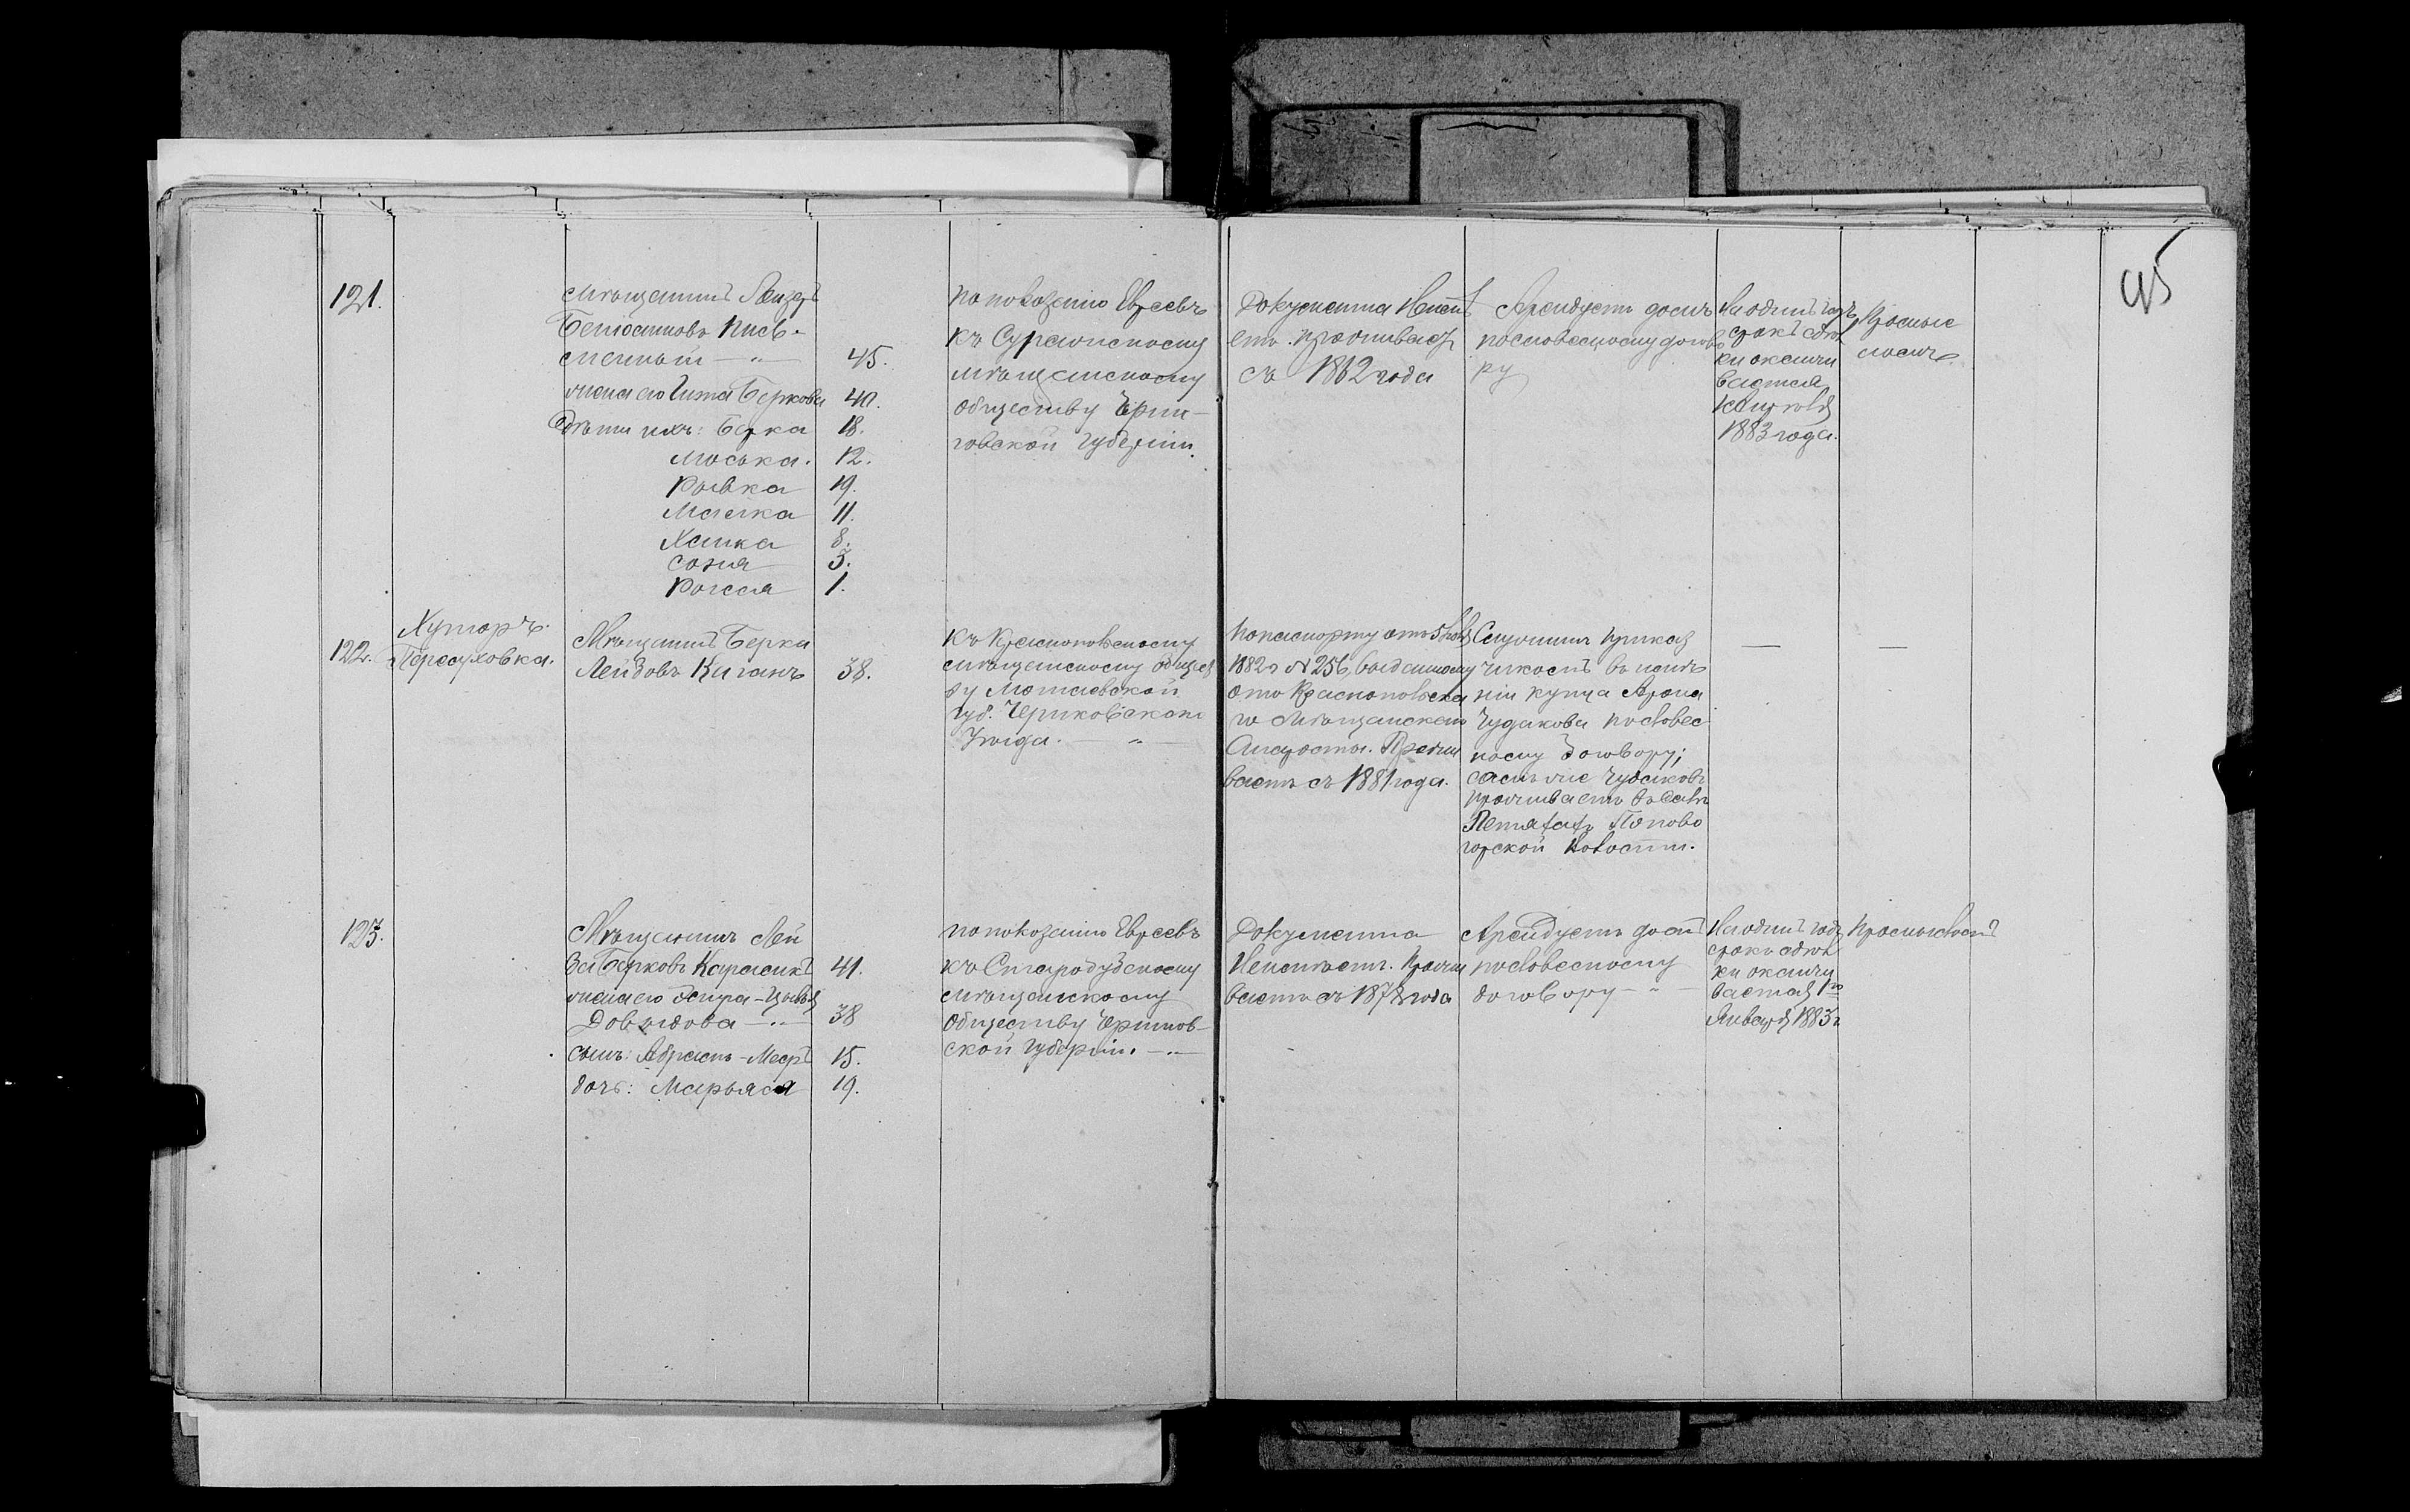 45
121.
Мѣщанинъ Лейзеръ
Беніаминовъ Пись-
менный — „ — 45.
жена его Гита Беркова 40.
Дѣти ихъ: Берка 18.
Моська. 12.
Рывка 19.
Малка 11.
Ханка 8.
Соня 3.
1.
по показанію Евреевъ
къ Суражскому
мѣщанскому
обществу Черни-
говской Губерніи.
Документа Неимѣ
етъ. проживаетъ
съ 1862 года
Арендуетъ домъ
пословесному догово
ру
На одинъ годъ
срокъ
ки оканчи
вается
1883 года.
122.
Хуторъ
Мѣщанинъ Берка
Лейбовъ Каганъ 38.
къ Краснопольскому
мѣщанскому общест
ву Могилевской
Губ. Чериковскаго
Уѣзда. — „ —
По паспорту отъ 5
1882 г № 256, выданному
отъ Краснопольска
го Мѣщанскаго
Старосты. Прожи
ваетъ съ 1881 года.
Служитъ приказ
чикомъ въ имѣ
ніи купца Арона
Чудакова пословес
ному договору;
самъ же Чудаковъ
проживаетъ въ селѣ
Попово
горской волости.
—
—
123.
Мѣщанинъ Лей
ба Берковъ Карасикъ 41.
жена его Эстра-Цывья
Довыдова — „ — 38
сынъ: Абрамъ-Мееръ 15.
дочь: Марьяся 19.
по показанію Евреевъ
къ Стародубскому
мѣщанскому
обществу Чернигов-
ской Губерніи. — „ —
Документа
Неимѣетъ. Прожи
ваетъ съ 1878 года
Арендуетъ домъ
пословесному
договору — „ —
На одинъ годъ
срокъ
ки оканчи
вается 1го
Января 1883 г